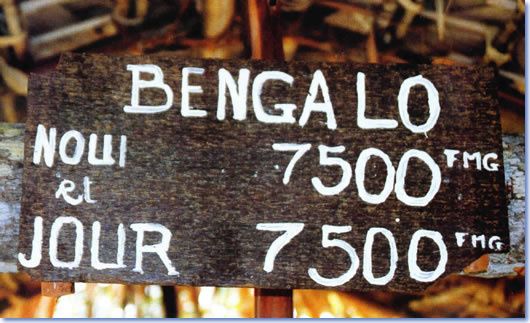 BENGALO
NOUI 7500 FMG
et
JOUR 7500 FMG